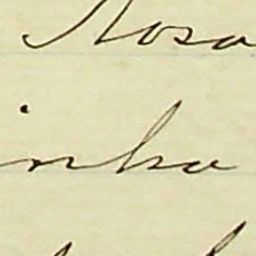 Rosa
inha